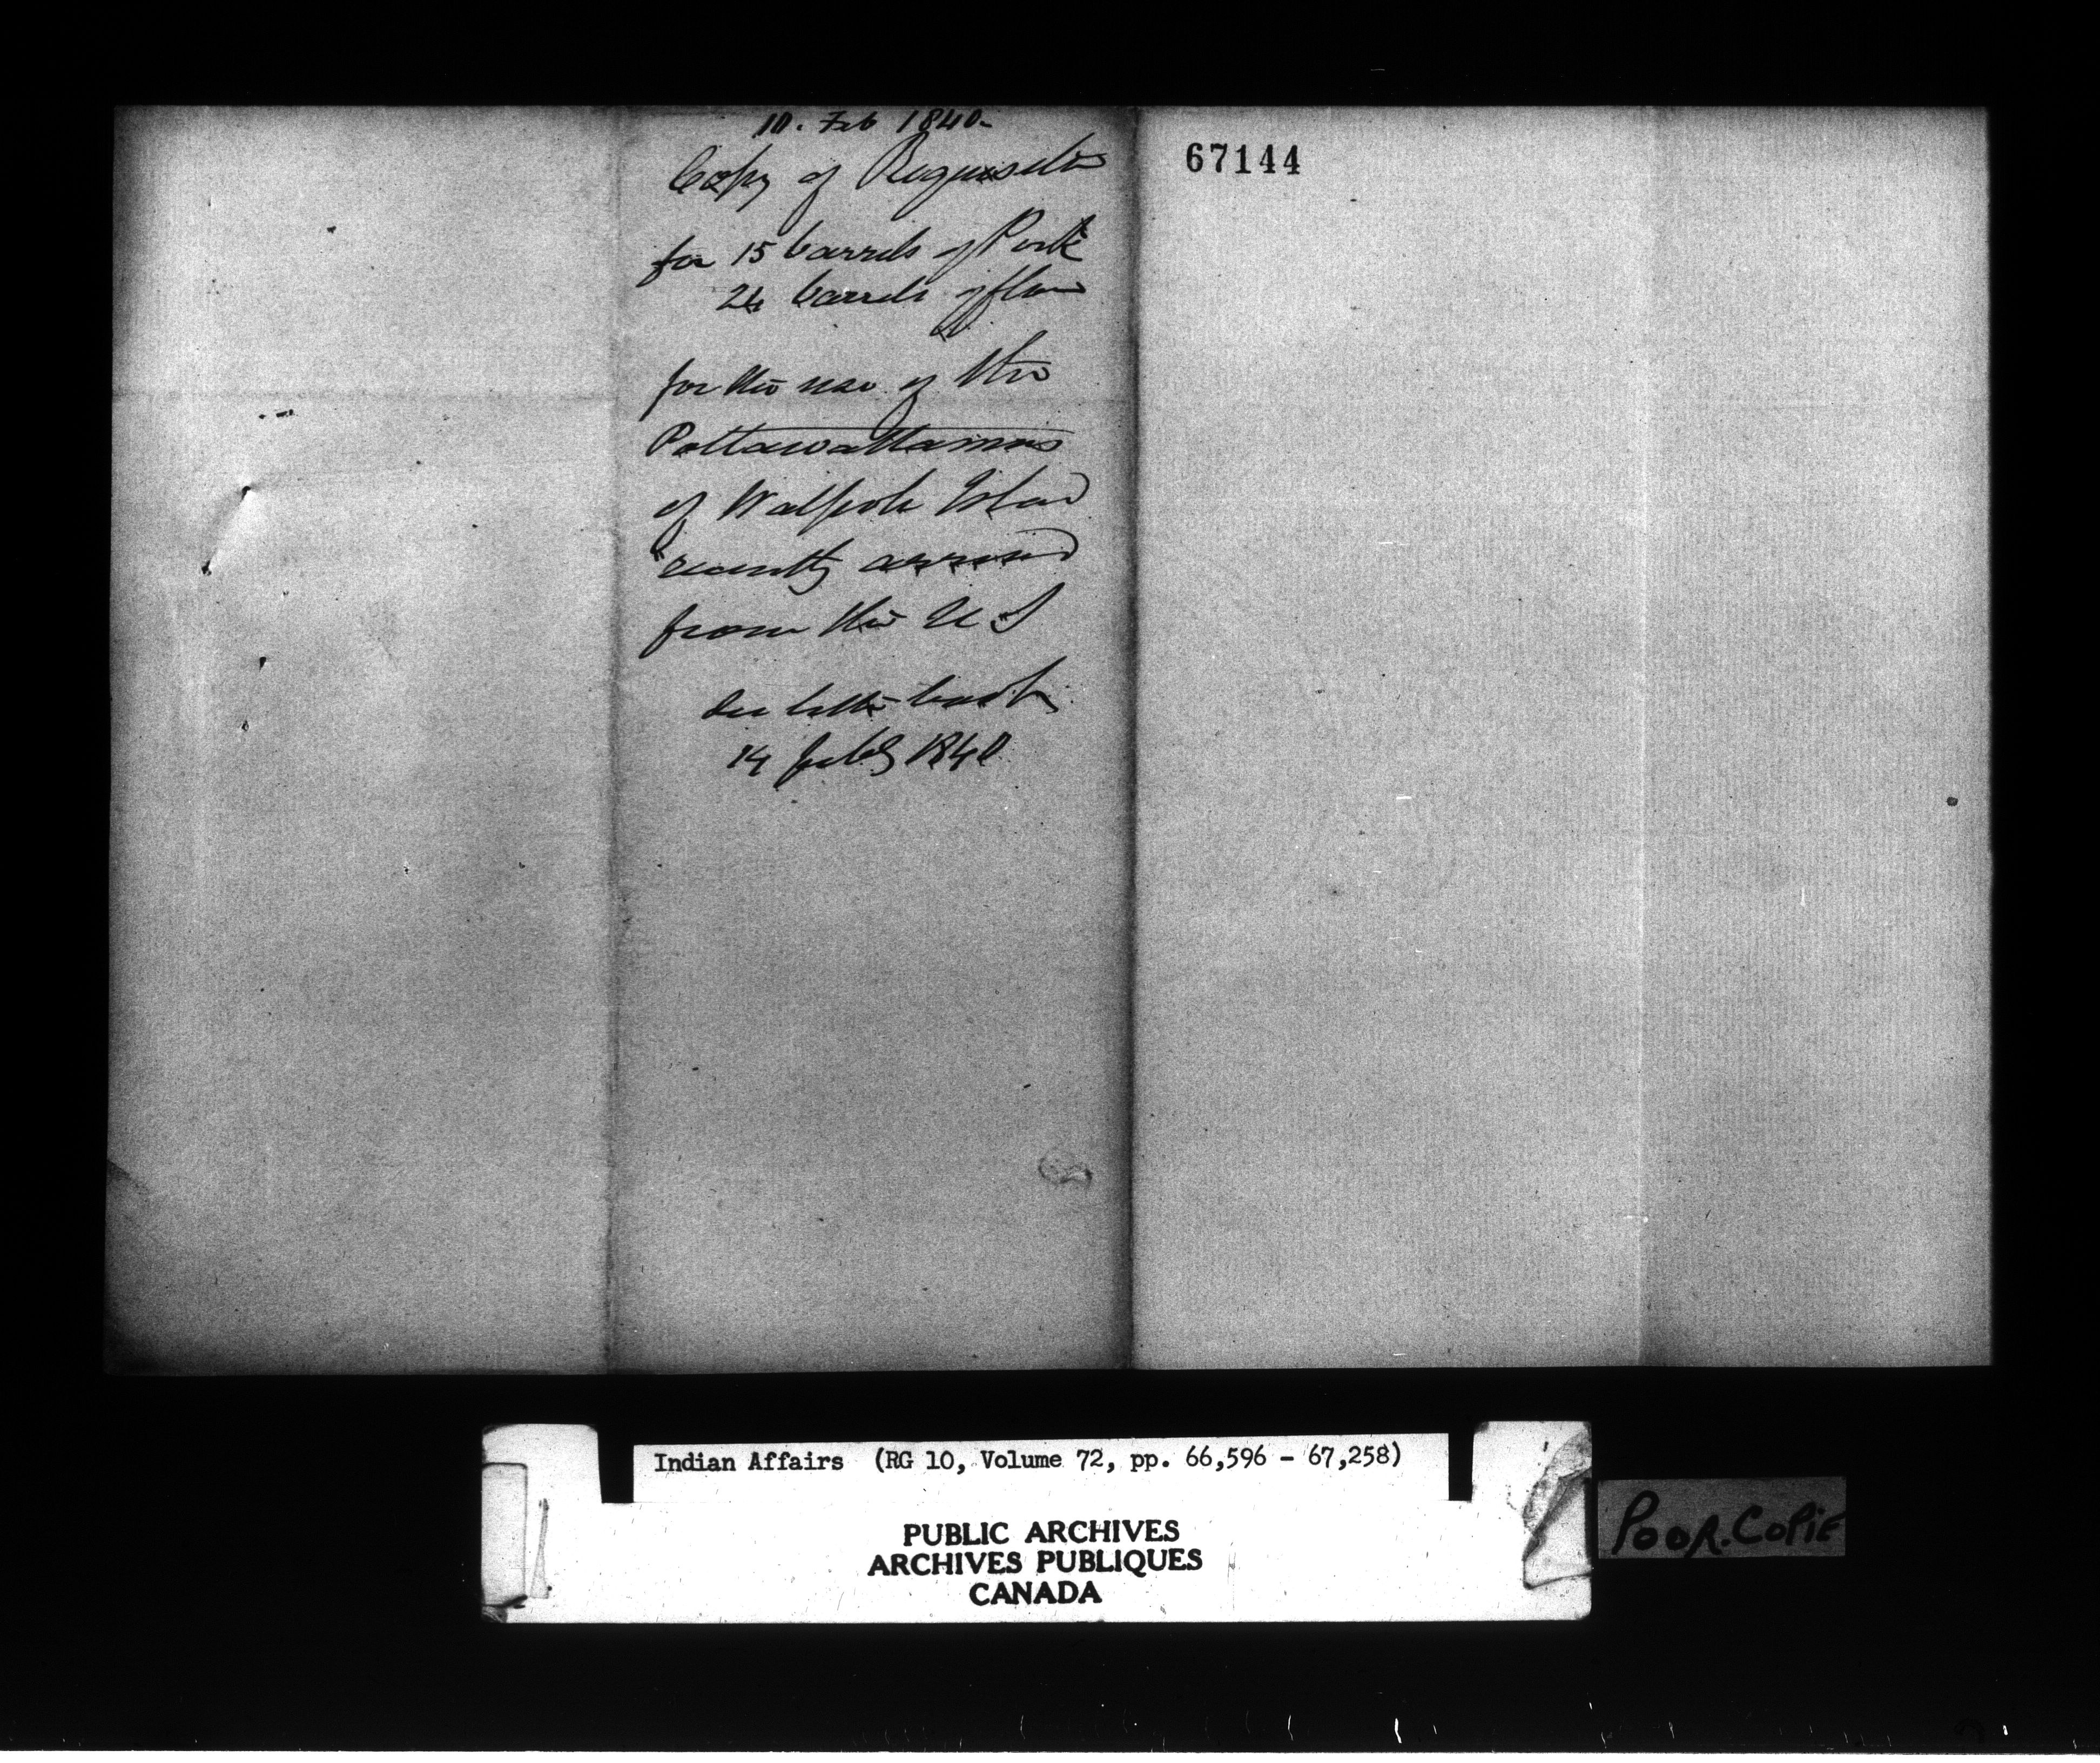 10. Feb 1840.
Copy of Requisition
for 15 barrels of Pork
24 barrels of flour
for the use of the
Pottawattamies
of Walpole Island
recently arrived
from the U S
See letter book
14 July 1840
67144
Indian Affairs (RG 10, Volume 72, pp. 66,596 - 67,258)
PUBLIC ARCHIVES
ARCHIVES PUBLIQUES
CANADA
POOR.COPIE